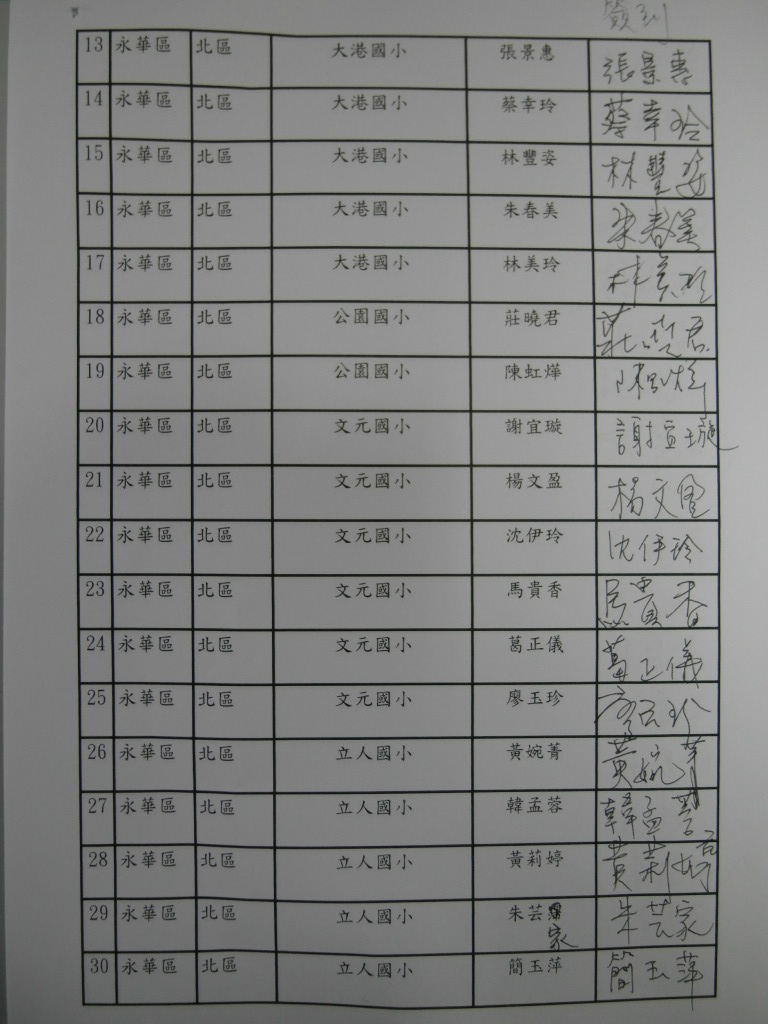 簽到
13 永華區 北區 大港國小 張景惠 張景惠
14 永華區 北區 大港國小 蔡幸玲 蔡幸玲
15 永華區 北區 大港國小 林豐姿 林豐姿
16 永華區 北區 大港國小 朱春美 朱春美
17 永華區 北區 大港國小 林美玲 林美玲
18 永華區 北區 公園國小 莊曉君 莊曉君
19 永華區 北區 公園國小 陳虹燁 陳虹燁
20 永華區 北區 文元國小 謝宜璇 謝宜璇
21 永華區 北區 文元國小 楊文盈 楊文盈
22 永華區 北區 文元國小 沈伊玲 沈伊玲
23 永華區 北區 文元國小 馬貴香 馬貴香
24 永華區 北區 文元國小 葛正儀 葛正儀
25 永華區 北區 文元國小 廖玉珍 廖玉珍
26 永華區 北區 立人國小 黃婉菁 黃婉菁
27 永華區 北區 立人國小 韓孟蓉 韓孟蓉
28 永華區 北區 立人國小 黃莉婷 黃莉婷
29 永華區 北區 立人國小 朱芸家 朱芸家
30 永華區 北區 立人國小 簡玉萍 簡玉萍